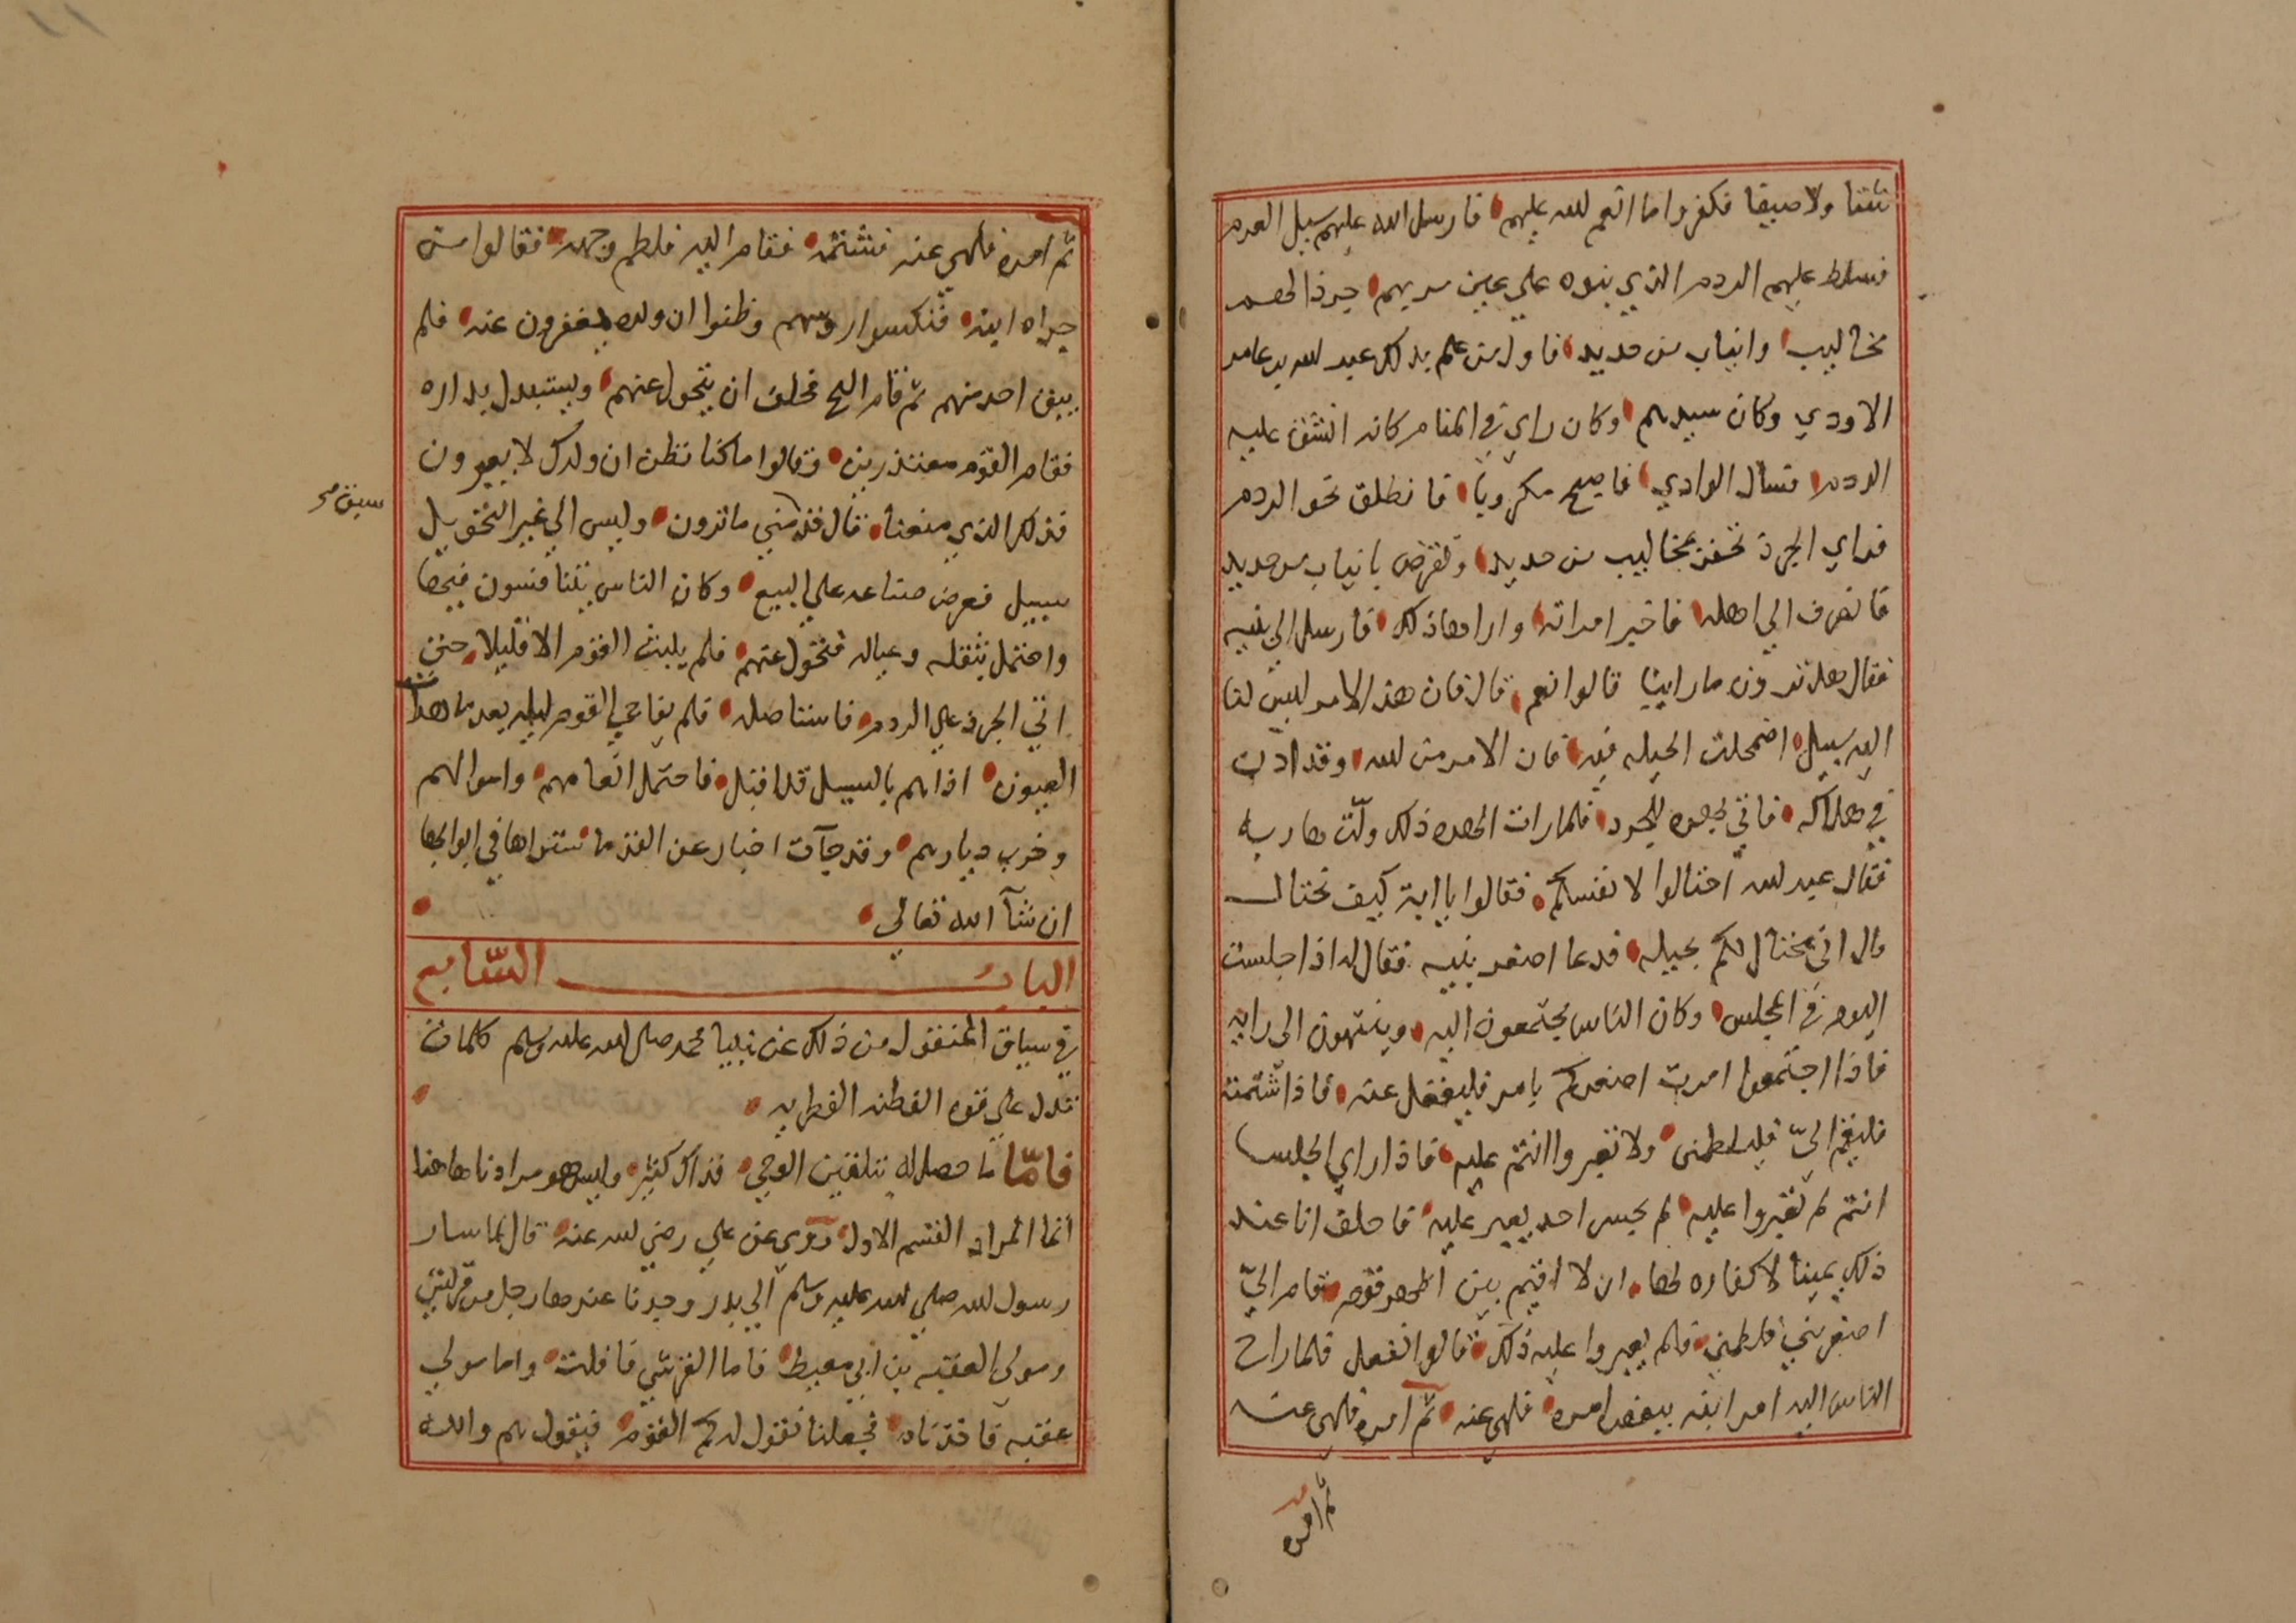 شتا ولا صيفا فكفروا ما انعم الله عليهم فارسل الله عليهم سيل العرم
فسلط عليهم الردم الذي بنوه علي عين سربهم جرذا له
مخاليب وانياب من حديد فاول من علم بذلك عبد الله بن عامر
الاودي وكان سيدهم وكان راي في المنام كانه انشق عليه
الردم فسال الوادي فاصبح مكروبا فانطلق نحو الردم
فراي الجرذ تحفر بمخاليب من حديد وتقرض بانياب من حديد
فانصرف الي اهله فاخبر امراته واراها ذلك فارسل الي بنيه
فقال هل ترون ما راينا قالوا نعم قال فان هذا الامر ليس لنا
اليه سبيل اضمحلت الحيله فيه فان الامر من الله وقد اذن
في هلاكه فاتي بهره للجرذ فلما رات الهره ذلك ولت هاربه
فقال عبد الله احتالوا لانفسكم فقالوا يا ابة كيف نحتال
قال اني محتال لكم بحيله فدعا اصغر بنيه فقال له اذا جلست
اليوم في المجلس وكان الناس يجتمعون اليه وينتهون الى رايه
فاذا اجتمعوا امرت اصغركم بامر فليغفل عنه فاذا شتمته
فليقم اليّ فليلطمني ولا تغيروا انتم عليه فاذا راي الجلسا
انتم لم تغيروا عليه لم يجسر احد يغير عليه فاحلف انا عند
ذلك يمينا لا كفاره لها ان لا اقيم بين اظهر قوم قام اليّ
اصغر بنيّ فلطمني فلم يغيروا عليه ذلك قالوا نفعل فلما راح
الناس اليه امر ابنه ببعض امره فلهى عنه ثم امره فلهى عنه
ثم امره
ثم امره فلهي عنه فشتمه فقام اليه فلطم وجهه فقالوا من
جراه ابنه فنكسوا روسهم وظنوا ان ولده يغفرون عنه فلم
يبق احد منهم ثم قام الشيخ فحلف ان يتحول عنهم ويستبدل بداره
فقام القوم معتذرين وقالوا ما كنا نظن ان ولدك لا يغيرون
فذلك الذي منعنا قال قد سبق مني ماترون وليس الي غير التحويل
سبق صح
سبيل فعرض متاعه علي البيع وكان الناس يتنافسون فيها
واحتمل بثقله وعياله فتحول عنهم فلم يلبث القوم الا قليلا حتى
اتي الجرذ علي الردم فاستاصله فلم يفاجي القوم ليله بعد ما هدات
العيون اذا هم بالسيل قد اقبل فاحتمل انعامهم واموالهم
وخرب ديارهم وقد جآت اخبار عن القدما ستراها في ابوابها
ان شآ الله تعالي
الباب السّابع
في سياق المنقول من ذلك عن نبينا محمد صلى الله عليه وسلم كلمات
تدل علي قوه الفطنه الفطريه
فامّا ما حصل له بتلقين الوحي فذاك كثير وليس هو مرادنا هاهنا
انما المراد القسم الاول روي عن علي رضي الله عنه قال لما سار
رسول الله صلي الله عليه وسلم الي بدر وجدنا عندها رجل من قريش
ومولي العقبه بن ابي معيط فاما القرشي فافلت واما مولي
عقبه فاخذناه فجعلنا نقول له كم القوم فيقول هم والله